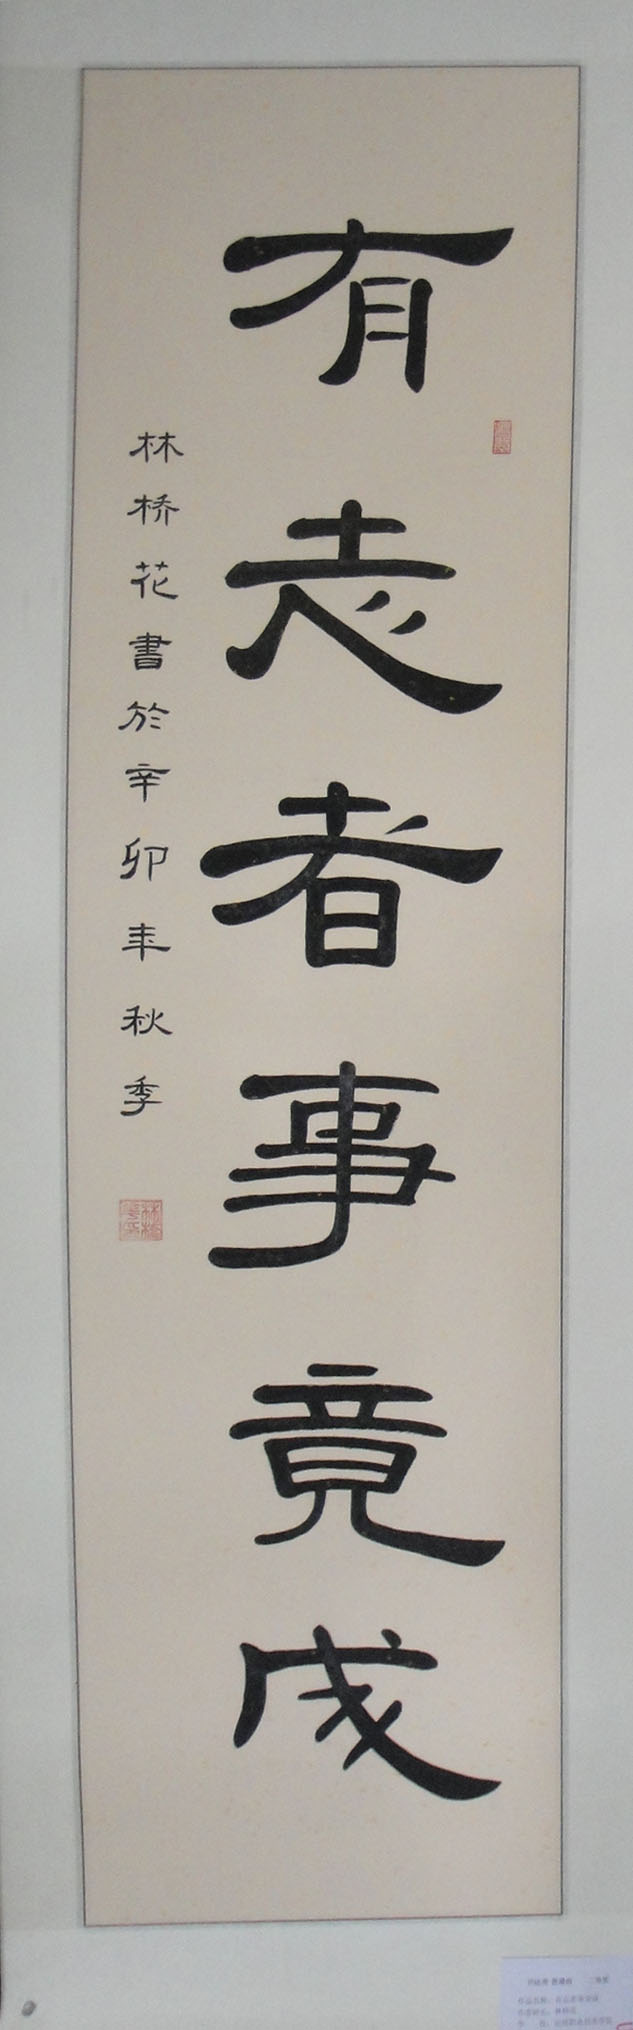 有志者事竟成
林桥花書於辛卯年秋季